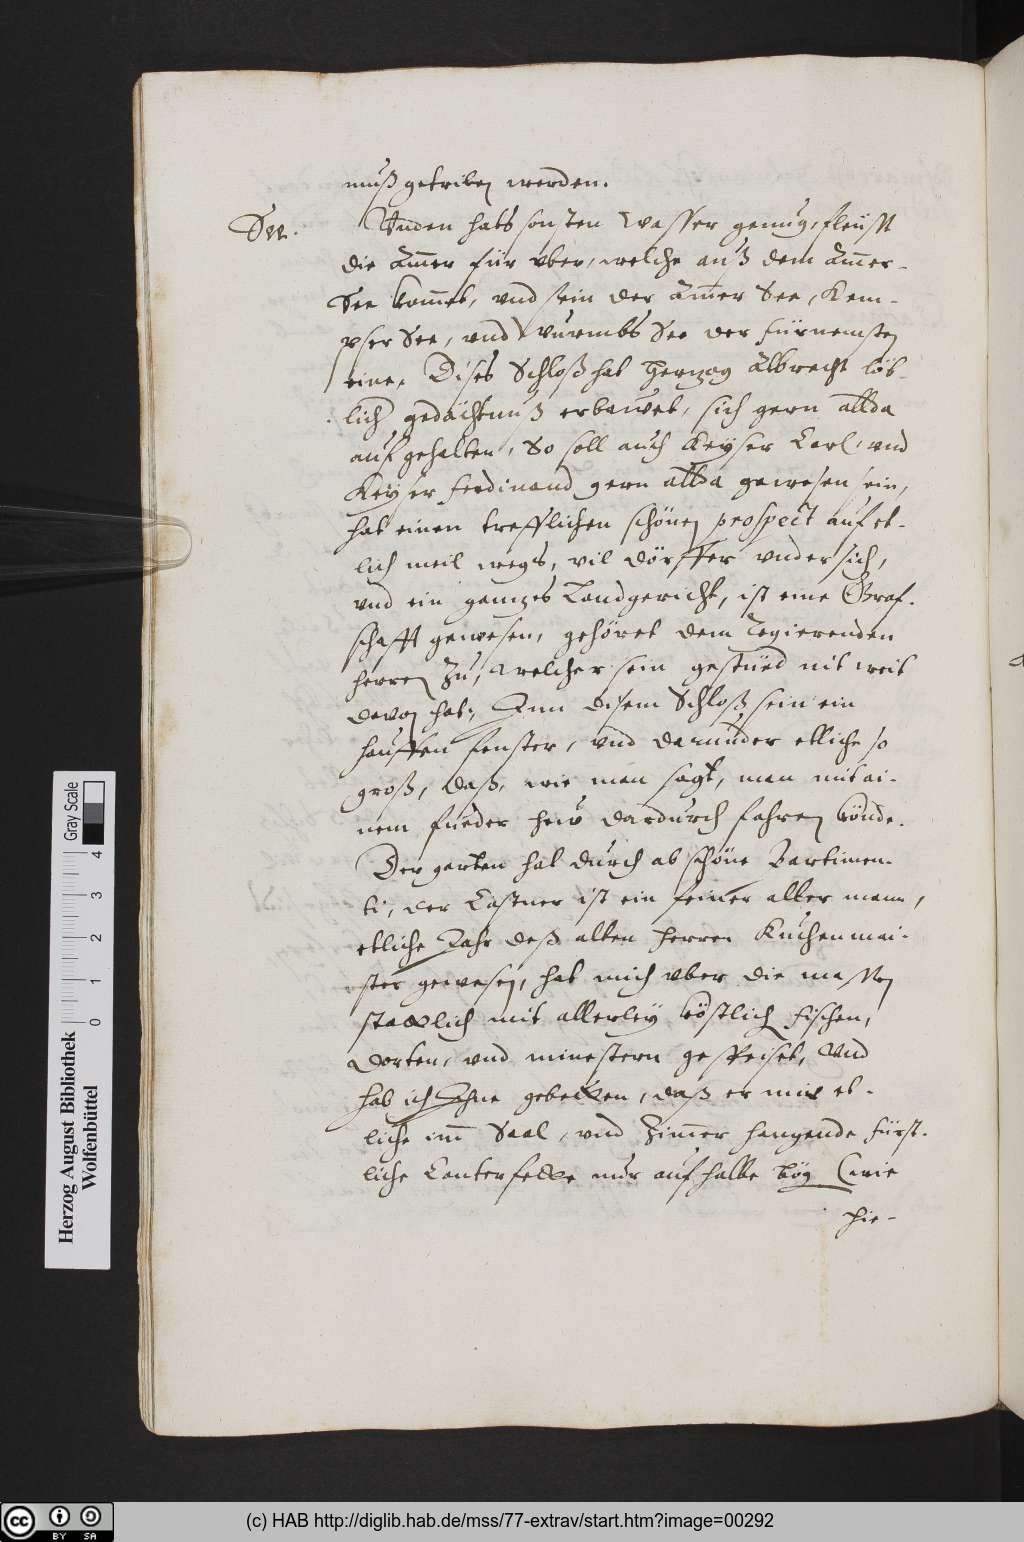 muß getriben werden.
See.
Vnden hats sonsten wasser genug, fleüsst
die Am̅er für vber, welche auß dem Am̅er-
See kom̅et, vnd sein der Am̅er See, Kem-
pser See, vnd Wurmbs See der fürnemsten
eine. Dises Schloß hat Hertzog Albrecht löb-
lich gedächtnuß erbawet, sich gern allda
aufgehalten, So soll auch Keyser Carl, vnd
Keyser Ferdinand gern allda gewesen sein,
hat einen trefflichen schönen prospect auf et-
lich meil wegs, vil dörffer vnder sich,
vnd ein gantzes Landgericht, ist eine Graf-
schafft gewesen, gehöret dem Regierenden
herren Zu, welcher sein gestüed nit weit
davon hat, Inn disem Schloß sein ein
hauffen fenster, vnd darunder etliche so
groß, daß, wie man sagt, man mit ai-
nem fueder hew dardurch fahren könde.
Der garten hat durch ab schöne Partimen-
ti, der Castner ist ein feiner alter mann,
etliche Jahr deß alten herren Kuchenmai-
ster gewesen, hat mich vber die massen
stattlich mit allerley köstlich fischen,
dorten, vnd minestern gespeiset, Vnd
hab ich Ihne gebetten, daß er mir et-
liche im̅ Saal, vnd Zim̅er hangende fürst-
liche Conterfette nur auf halbe bög (wie
hie-
Herzog August Bibliothek
Wolfenbüttel
Gray Scale
0 1 2 3 4
cc BY SA
(c) HAB http://diglib.hab.de/mss/77-extrav/start.htm?image=00292